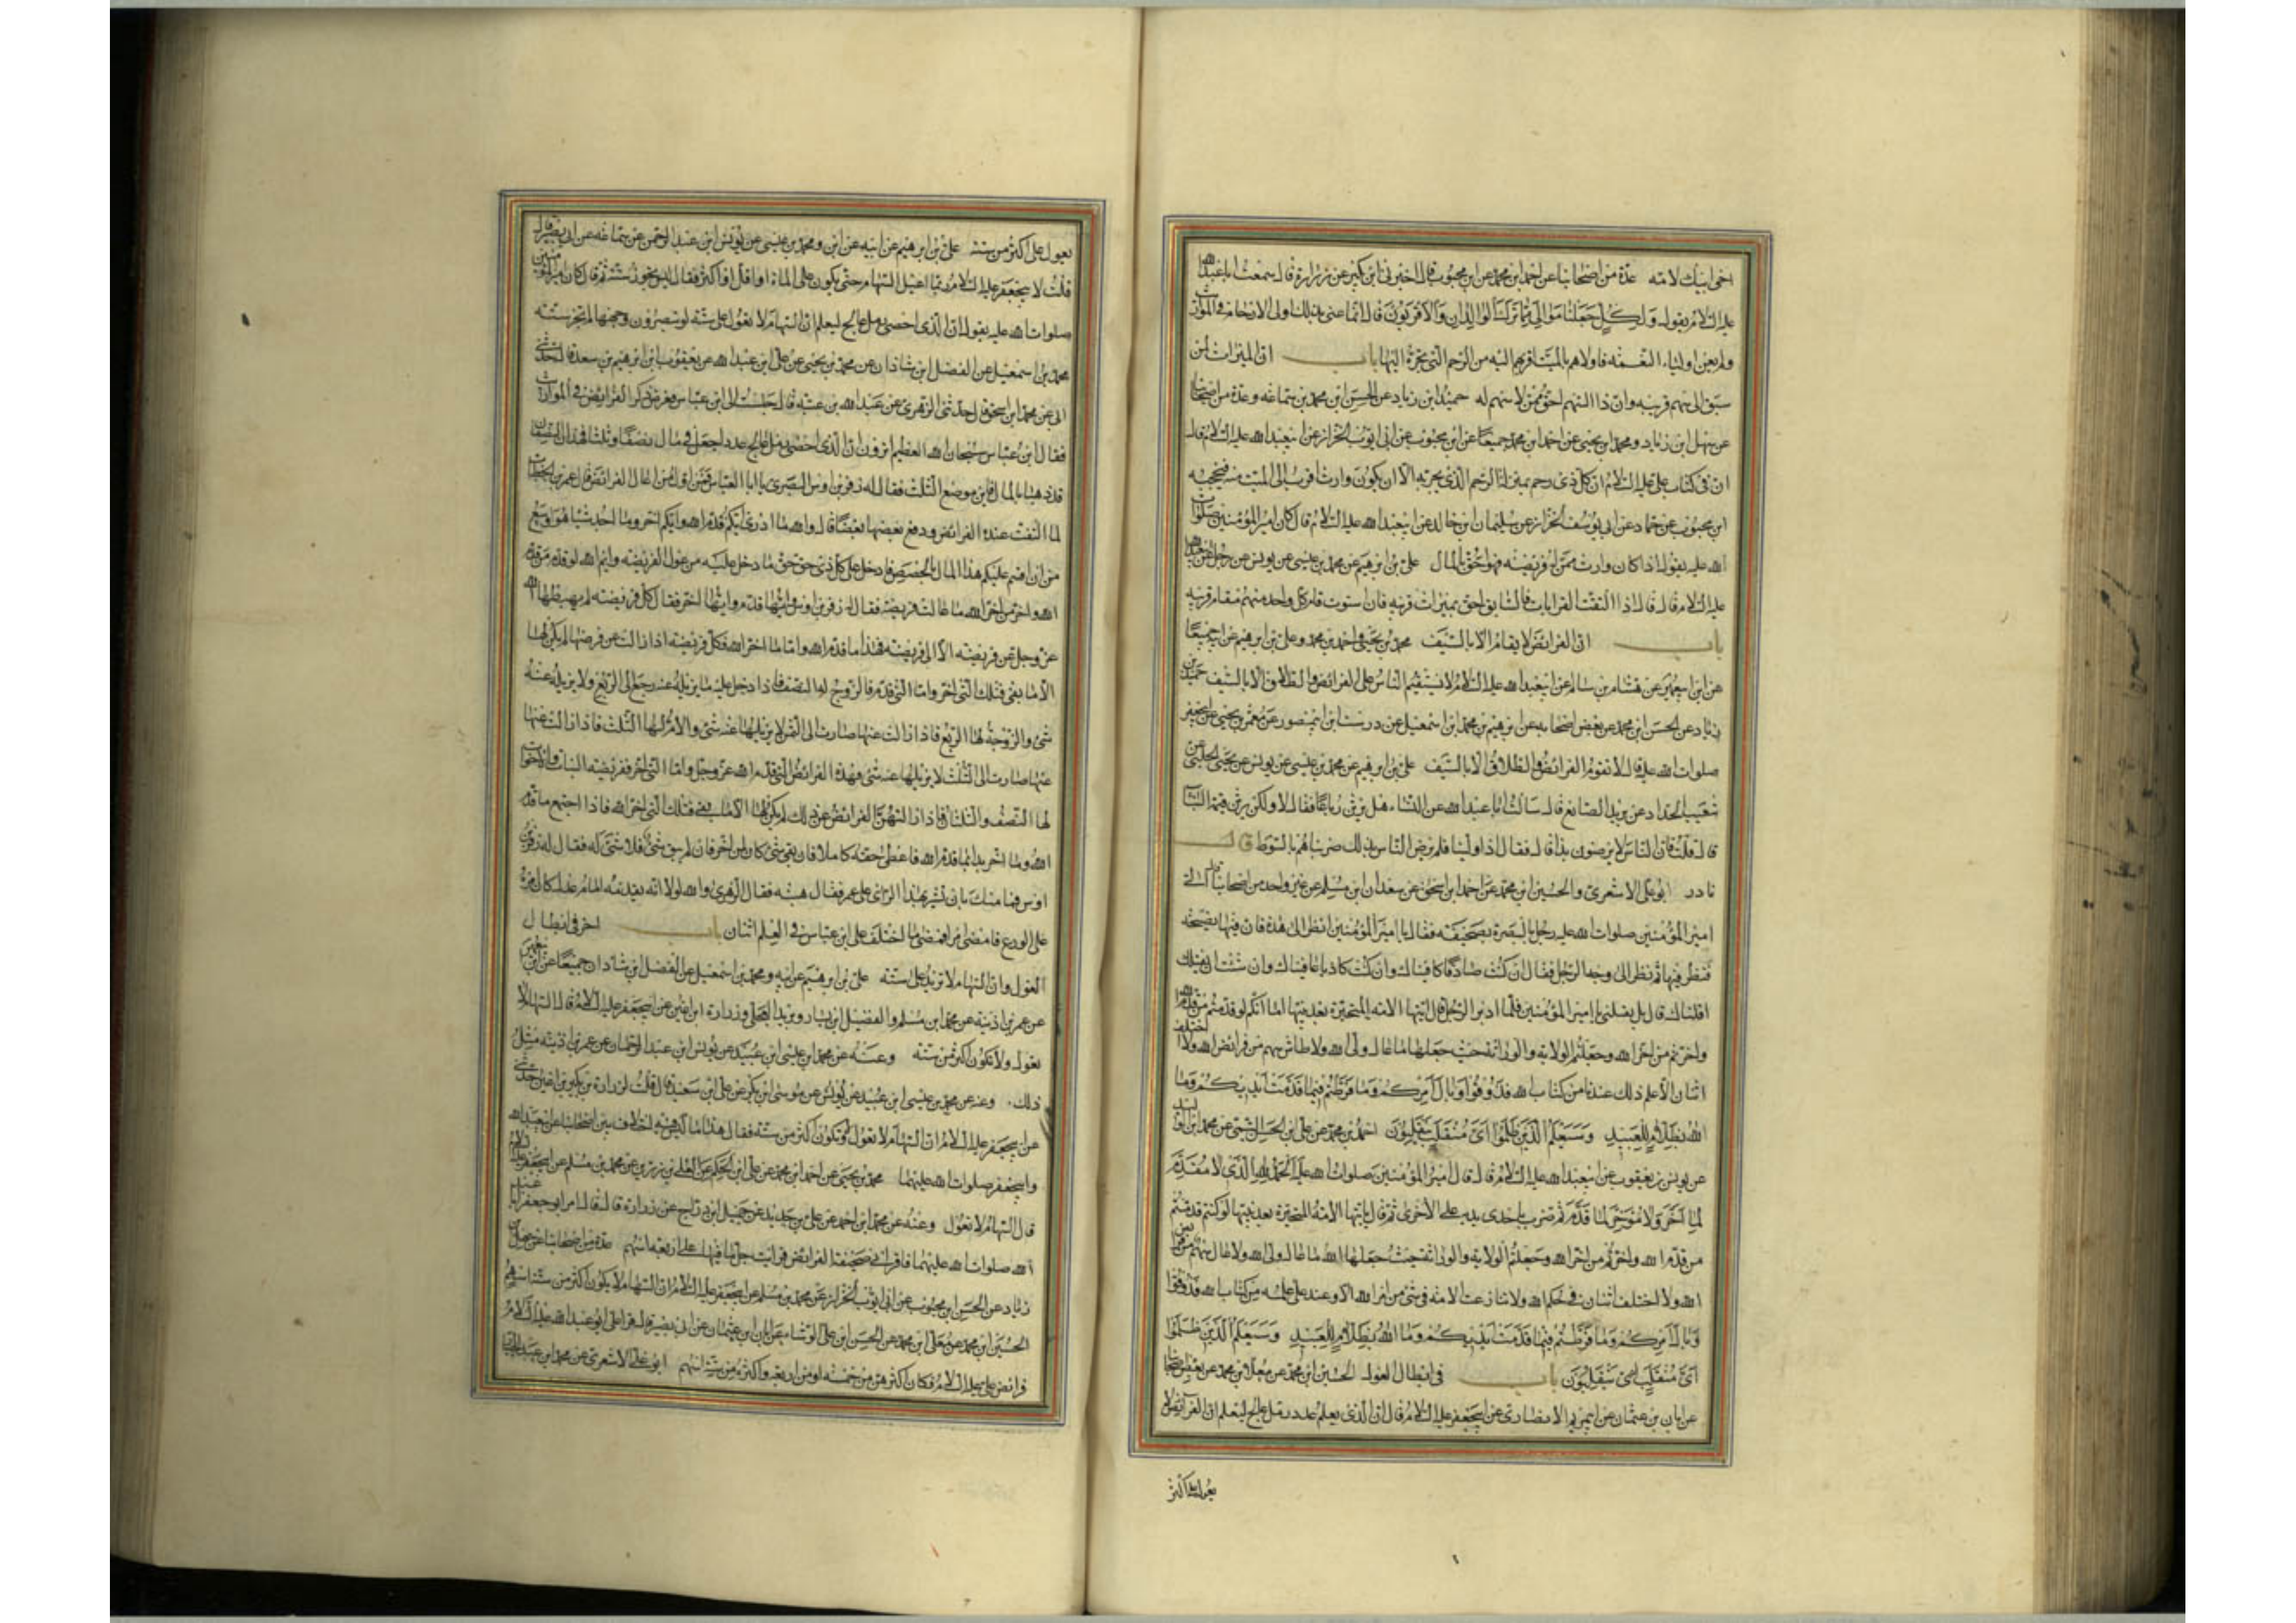 اخى ابيك لامه عدة من اصحابنا عن احمد ابن محمد عن ابن محبوب قال اخبرنى ابن بكير عن زرارة قال سمعت ابا عبدالله
عليه السلام يقول ولكل جعلنا موالى مما ترك الوالدان والاقربون قال انما عنى بذلك اولى الارحام فى المواريث
ولم يعن اولياء النعمة فاولاهم بالميت اقربهم اليه من الرحم التى تجره اليها باب ان الميراث لمن
سبق الى سهم قريبه وان ذا السهم احق ممن لا سهم له حميد ابن زياد عن الحسن ابن محمد بن سماعه وعدة من اصحابنا
عن سهل ابن زياد ومحمد ابن يحيى عن احمد ابن محمد جميعا عن ابن محبوب عن ابى ايوب الخزاز عن ابيعبدالله عليه السلام قال
ان فى كتاب على عليه السلام ان كل ذى رحم بمنزلة الرحم الذى يجر به الا ان يكون وارث اقرب الى الميت منه فيحجبه
ابن محبوب عن حماد عن ابى يوسف الخزاز عن سليمان ابن خالد عن ابيعبدالله عليه السلام قال كان امير المؤمنين صلوات
الله عليه يقول اذا كان وارث ممن له فريضه فهو احق بالمال على بن ابرهيم عن محمد بن عيسى عن يونس عن رجل عن ابيعبدالله
عليه السلام قال قال اذا التفت القرابات فالسابق احق بميراث قريبه فان استوت قام كل واحد منهم مقام قريبه
باب ان الفرائض لا يقام الا بالسيف محمد بن يحيى واحمد بن محمد وعلى بن ابرهيم عن ابيه جميعا
عن ابن ابيعمير عن هشام بن سالم عن ابيعبدالله عليه السلام لا يستقيم الناس على الفرائض والطلاق الا بالسيف حميد بن
زياد عن الحسن ابن محمد عن بعض اصحابه عن ابرهيم بن محمد ابن اسمعيل عن درست ابن ابيمنصور عن معمر بن يحيى عن ابيجعفر
صلوات الله عليه قال لا تقوم الفرائض والطلاق الا بالسيف على بن ابرهيم عن محمد بن عيسى عن يونس عن يحيى الحلبى عن
شعيب الحداد عن يزيد الصائغ قال سالت ابا عبدالله عن النساء هل يرثن رباعا فقال لا ولكن يرثن قيمة البناء
قال قلت فان الناس لا يرضون بذا قال فقال اذا ولينا فلم يرض الناس بذلك ضربناهم بالسوط
نادر ابو على الاشعرى والحسين ابن محمد عن احمد ابن اسحق عن سعدان ابن مسلم عن غير واحد من اصحابنا قال اتى
امير المؤمنين صلوات الله عليه رجل بالبصرة بصحيفه فقال يا امير المؤمنين انظر الى هذه فان فيها نصيحة
فنظر فيها ثم نظر الى وجه الرجل فقال ان كنت صادقا كافيناك وان كنت كاذبا عاقبناك وان شئت ان نقيلك
اقلناك قال بل يقيلنى يا امير المؤمنين فلما ادبر الرجل قال ايتها الامه المتحيرة بعد نبيها اما انكم لو قدمتم من قدم الله
واخرتم من اخر الله وجعلتم الولايه والوراثه حيث جعلها ما عال ولى الله ولا طاش سهم من فرائض الله ولا اختلف
اثنان الا علم ذلك عندنا من كتاب الله فذوقوا وبال امركم وما فرطتم فيما قدمت ايديكم وما
الله بظلام للعبيد وسيعلم الذين ظلموا اى منقلب ينقلبون احمد بن محمد عن على ابن الحسن التيمى عن محمد ابن الوليد
عن يونس بن يعقوب عن ابيعبدالله عليه السلام قال قال امير المؤمنين صلوات الله عليه الحمد لله الذى لا مقدم
لما اخر ولا مؤخر لما قدم ثم ضرب باحدى يديه على الاخرى ثم قال يا ايتها الامة المتحيرة بعد نبيها لو كنتم قدمتم
من قدم الله واخرتم من اخر الله وجعلتم الولايه والوراثة حيث جعلها الله ما عال ولى الله ولا عال سهم من فرائض
الله ولا اختلف اثنان فى حكم الله ولا تنازعت الامة فى شئ من امر الله الا وعند على علمه من كتاب الله فذوقوا
وبال امركم وما فرطتم فيما قدمت ايديكم وما الله بظلام للعبيد وسيعلم الذين ظلموا
اى منقلب ينقلبون باب فى ابطال العول الحسين ابن محمد عن معلا ابن محمد عن بعض اصحابنا
عن ابان بن عثمان عن ابيمريم الانصارى عن ابيجعفر عليه السلام قال ان الذى يعلم عدد رمل عالج ليعلم ان الفرائض لا
يعول على اكثر
يعول على اكثر من سته على بن ابرهيم عن ابيه ومحمد بن عيسى عن يونس ابن عبد الرحمن عن سماعه عن ابى بصير قال
قلت لابيجعفر عليه السلام ربما اعيل السهام حتى يكون على المائة او اقل او اكثر فقال ليس يجوز ستة ثم قال كان امير المؤمنين
صلوات الله عليه يقول ان الذى احصى رمل عالج ليعلم ان السهام لا تعول على ستة لو تبصرون وجهها لم تجز ستة
محمد بن اسمعيل عن الفضل ابن شاذان عن محمد بن يحيى عن على ابن عبدالله عن يعقوب ابن ابرهيم بن سعد قال حدثنى
ابى عن محمد ابن اسحق قال حدثنى الزهرى عن عبدالله بن عتبه قال جلست الى ابن عباس فعرض ذكر الفرائض فى المواريث
فقال ابن عباس سبحان الله العظيم اترون ان الذى احصى رمل عالج عدد اجعل فى مال نصفا وثلثا فهذان النصفان
قد ذهبا بالمال فاين موضع الثلث فقال له زفر بن اوس البصرى يا ابا العباس فمن اول من اعال الفرائض قال عمر بن الخطاب
لما التفت عنده الفرائض ودفع بعضها بعضا قال والله ما ادرى ايكم قدم الله وايكم اخر وما اجد شيئا هو اوسع
من ان اقسم عليكم هذا المال بالحصص فادخل على كل ذى حق حق ما دخل عليه من عول الفريضه وايم الله لو قدم من قدم
الله واخر من اخر الله ما عالت فريضه فقال له زفر بن اوس وايتها قدم وايتها اخر فقال كل فريضه لم يهبطها الله
عز وجل عن فريضه الا الى فريضه فهذا ما قدم الله واما ما اخر الله فكل فريضه اذا زالت عن فرضها لم يكن لها
الا ما بقى فتلك التى اخر واما التى قدم فالزوج له النصف فاذا دخل عليه ما يزيله عنه رجع الى الربع ولا يزيله عنه
شئ والزوجة لها الربع فاذا زالت عنها صارت الى الثمن لا يزيلها عنه شئ والام لها الثلث فاذا زالت عنها
عنها صارت الى الثلث لا يزيلها عنه شئ فهذه الفرائض التى قدم الله عز وجل واما التى اخر ففريضه البنات والاخوات
لها النصف والثلثان فاذا ازالتهن الفرائض عن ذلك لم يكن لها الا ما بقى فتلك التى اخر الله فاذا اجتمع ما قدم
الله وما اخر بدئ بما قدم الله فاعطى حقه كاملا فان بقى شئ كان لمن اخر فان لم يبق شئ فلا شئ له فقال له زفر بن
اوس فما منعك بان تشير بهذا الراى على عمر فقال هيبة فقال الزهرى والله لولا انه تقدمه امام عدل كان امره
على الورع فامضى امرا فمضى ما اختلف على ابن عباس فى العلم اثنان باب اخر فى ابطال
العول وان السهام لا تزيد على ستة على بن ابرهيم عن ابيه ومحمد بن اسمعيل عن الفضل ابن شاذان جميعا عن ابن ابيعمير
عن عمر بن اذينة عن محمد ابن مسلم والفضيل ابن يسار وبريد العجلى وزرارة ابن اعين عن ابيجعفر عليه السلام قال السهام لا
تعول ولا تكون اكثر من ستة وعنه عن محمد ابن عيسى ابن عبيد عن يونس ابن عبد الرحمان عن عمر بن اذينه مثل
ذلك. وعنه عن محمد بن عيسى ابن عبيد عن يونس عن موسى ابن بكر عن على ابن سعيد قال قلت لزرارة ان بكير بن اعين حدثنى
عن ابيجعفر عليه السلام ان السهام لا تعول ولا تكون اكثر من ستة فقال هذا ما ليس فيه اختلاف بين اصحابنا عن ابيعبدالله
وابيجعفر صلوات الله عليهما محمد بن يحيى عن احمد ابن محمد عن على ابن الحكم عن العلاء بن رزين عن محمد بن مسلم عن ابيجعفر عليه السلام
قال السهام لا تعول وعنه عن محمد ابن احمد عن على بن حديد عن جميل ابن دراج عن زرارة قال قال امر ابو جعفر ابا عبد
الله صلوات الله عليهما فاقرانى صحيفة الفرائض فرايت جل ما فيها على اربعة اسهم عدة من اصحابنا عن سهل بن
زياد عن الحسن ابن محبوب عن ابى ايوب الخزاز عن محمد بن مسلم عن ابيجعفر عليه السلام ان السهام لا يكون اكثر من ستة اسهم
الحسين ابن محمد عن معلى ابن محمد عن الحسن ابن على الوشاء عن ابان ابن عثمان عن ابى بصير قال قرا على ابو عبدالله عليه السلام
فرائض على عليه السلام فكان اكثرهن من خمسه او من اربعه واكثره من سته اسهم ابو على الاشعرى عن محمد ابن عبد الجبار